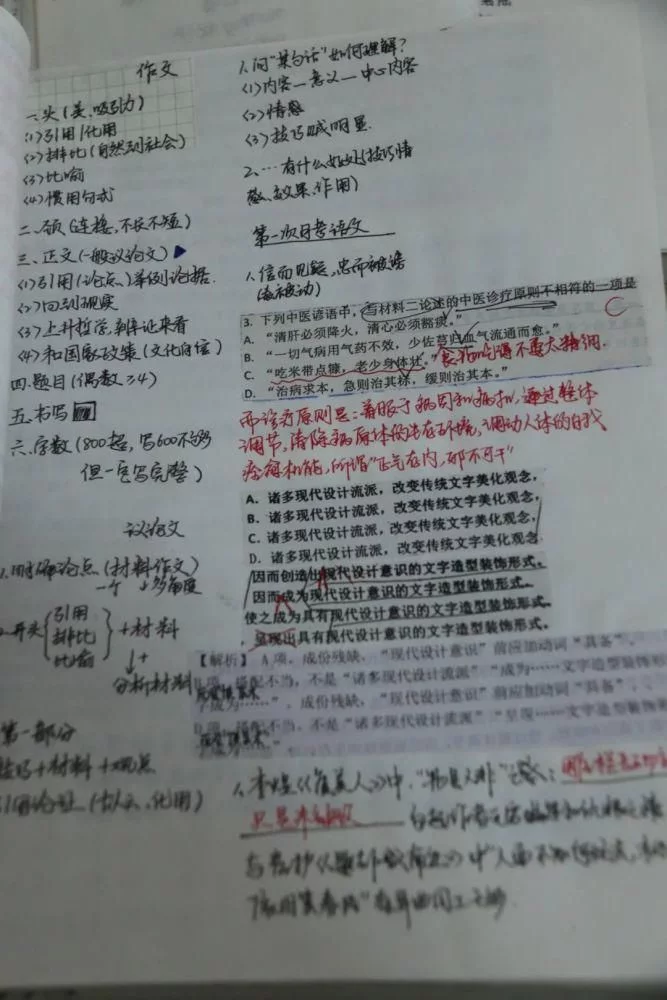 作文
一、头(美、吸引力)
(1)引用/化用
(2)排比(自然到社会)
(3)比喻
(4)惯用句式
二、颈(连接,不长不短)
三、正文(一般议论文)
(1)引用(论点、)举例论据.
(2)回到现实
(3)上升哲学,辩证来看
(4)和国家政策(文化自信)
四、题目(偶数≥4)
五、书写
六、字数(800超,写600不够
但一定写完整)
议论文
1.明确论点(材料作文)
一个 多角度
2.开头 引用 排比 比喻 +材料
↓+
分析材料
第一部分
+材料+观点
引用论证(古人云、化用)
1.问"某句话"如何理解?
(1)内容—意义—中心内容
(2)情感
(3)技巧明显.
2、…有什么好处(技巧情
感、效果、作用)
第一次月考语文
1.信而见疑,忠而被谤
(表被动)
3. 下列中医谚语中,与材料二论述的中医诊疗原则不相符的一项是
A. "清肝必须降火,清心必须豁痰。"
B. "一切气病用气药不效,少佐芎归血气流通而愈。"
C. "吃米带点糠,老少身体壮。"食物吃得不要太精细.
D. "治病求本,急则治其标,缓则治其本。"
而诊疗原则是:着眼于病因和病机,通过整体
调节,清除病原体的生存环境,调动人体的自我
痊愈机能,所谓"正气在内,邪不可干"
A. 诸多现代设计流派,改变传统文字美化观念,
B. 诸多现代设计流派,改变传统文字美化观念,
C. 诸多现代设计流派,改变传统文字美化观念,
D. 诸多现代设计流派,改变传统文字美化观念,
因而创造出现代设计意识的文字造型装饰形式。
因而成为现代设计意识的文字造型装饰形式。
使之成为具有现代设计意识的文字造型装饰形式。
呈现出具有现代设计意识的文字造型装饰形式。
【解析】 A项,成份残缺,"现代设计意识"前应加动词"具备"。
B项,搭配不当,不是"诸多现代设计流派""成为……文字造型装饰形
"成为……",成份残缺,"现代设计意识"前应加动词"具备"。
D项,搭配不当,不是"诸多现代设计流派""呈现……文字造型装饰
1.李煜《虞美人》中,"物是人非"之感:
只是朱颜改
与崔护《题都城南庄》中"人面不知何处去,